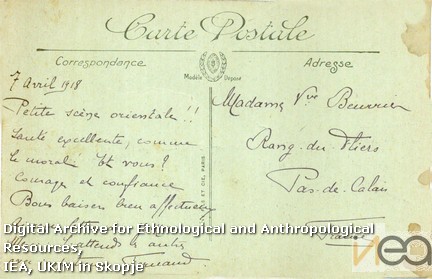 Carte Postale
Correspondance
Adresse
Modèle Déposé
7 Avril 1918
Petite scène orientale !!
Santé excellente, comme
le moral. Et vous?
Courage et confiance
Bons baisers bien affectueux
Fernand
Madame Vve Beuvrier
Rang-du-Fliers
Pas-de-Calais
ET CIE, PARIS
Digital Archive for Ethnological and Anthropological
Resources,
IEA, UKIM in Skopje
iea